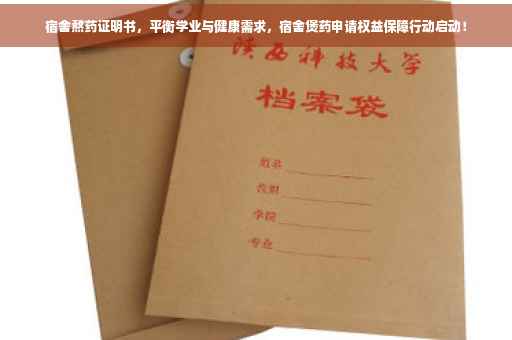 宿舍熬药证明书，平衡学业与健康需求，宿舍煲药申请权益保障行动启动！
陕西科技大学
档案袋
姓名
学院
专业